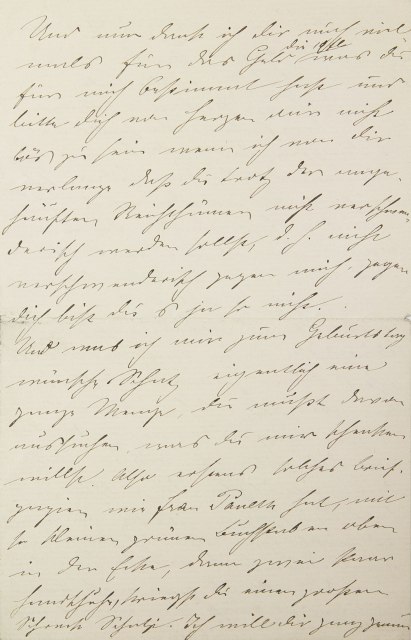 Und nun dank ich dir noch viel
mals für das Geld was du
für mich bestimmt hast und
bitte dich von Herzen mir nicht
bös zu sein wenn ich von dir
verlange daß du trotz der ange
häuften Reichthümer nicht verschwen
derisch werden sollst, d. h. nicht
verschwenderisch gegen mich, gegen
dich bist du s ja so nicht.
Und was ich mir zum Geburtstag
wünsche Schatz eigentlich eine
ganze Menge, du mußt davon
aussuchen was du mir schenken
willst. Also erstens solches Brief
papier wie Frau hat, mit
so kleinen grünen Buchstaben oben
in der Ecke, dann zwei Paar
Handschuh, kriegst du einen großen
Ich will dir ganz genau